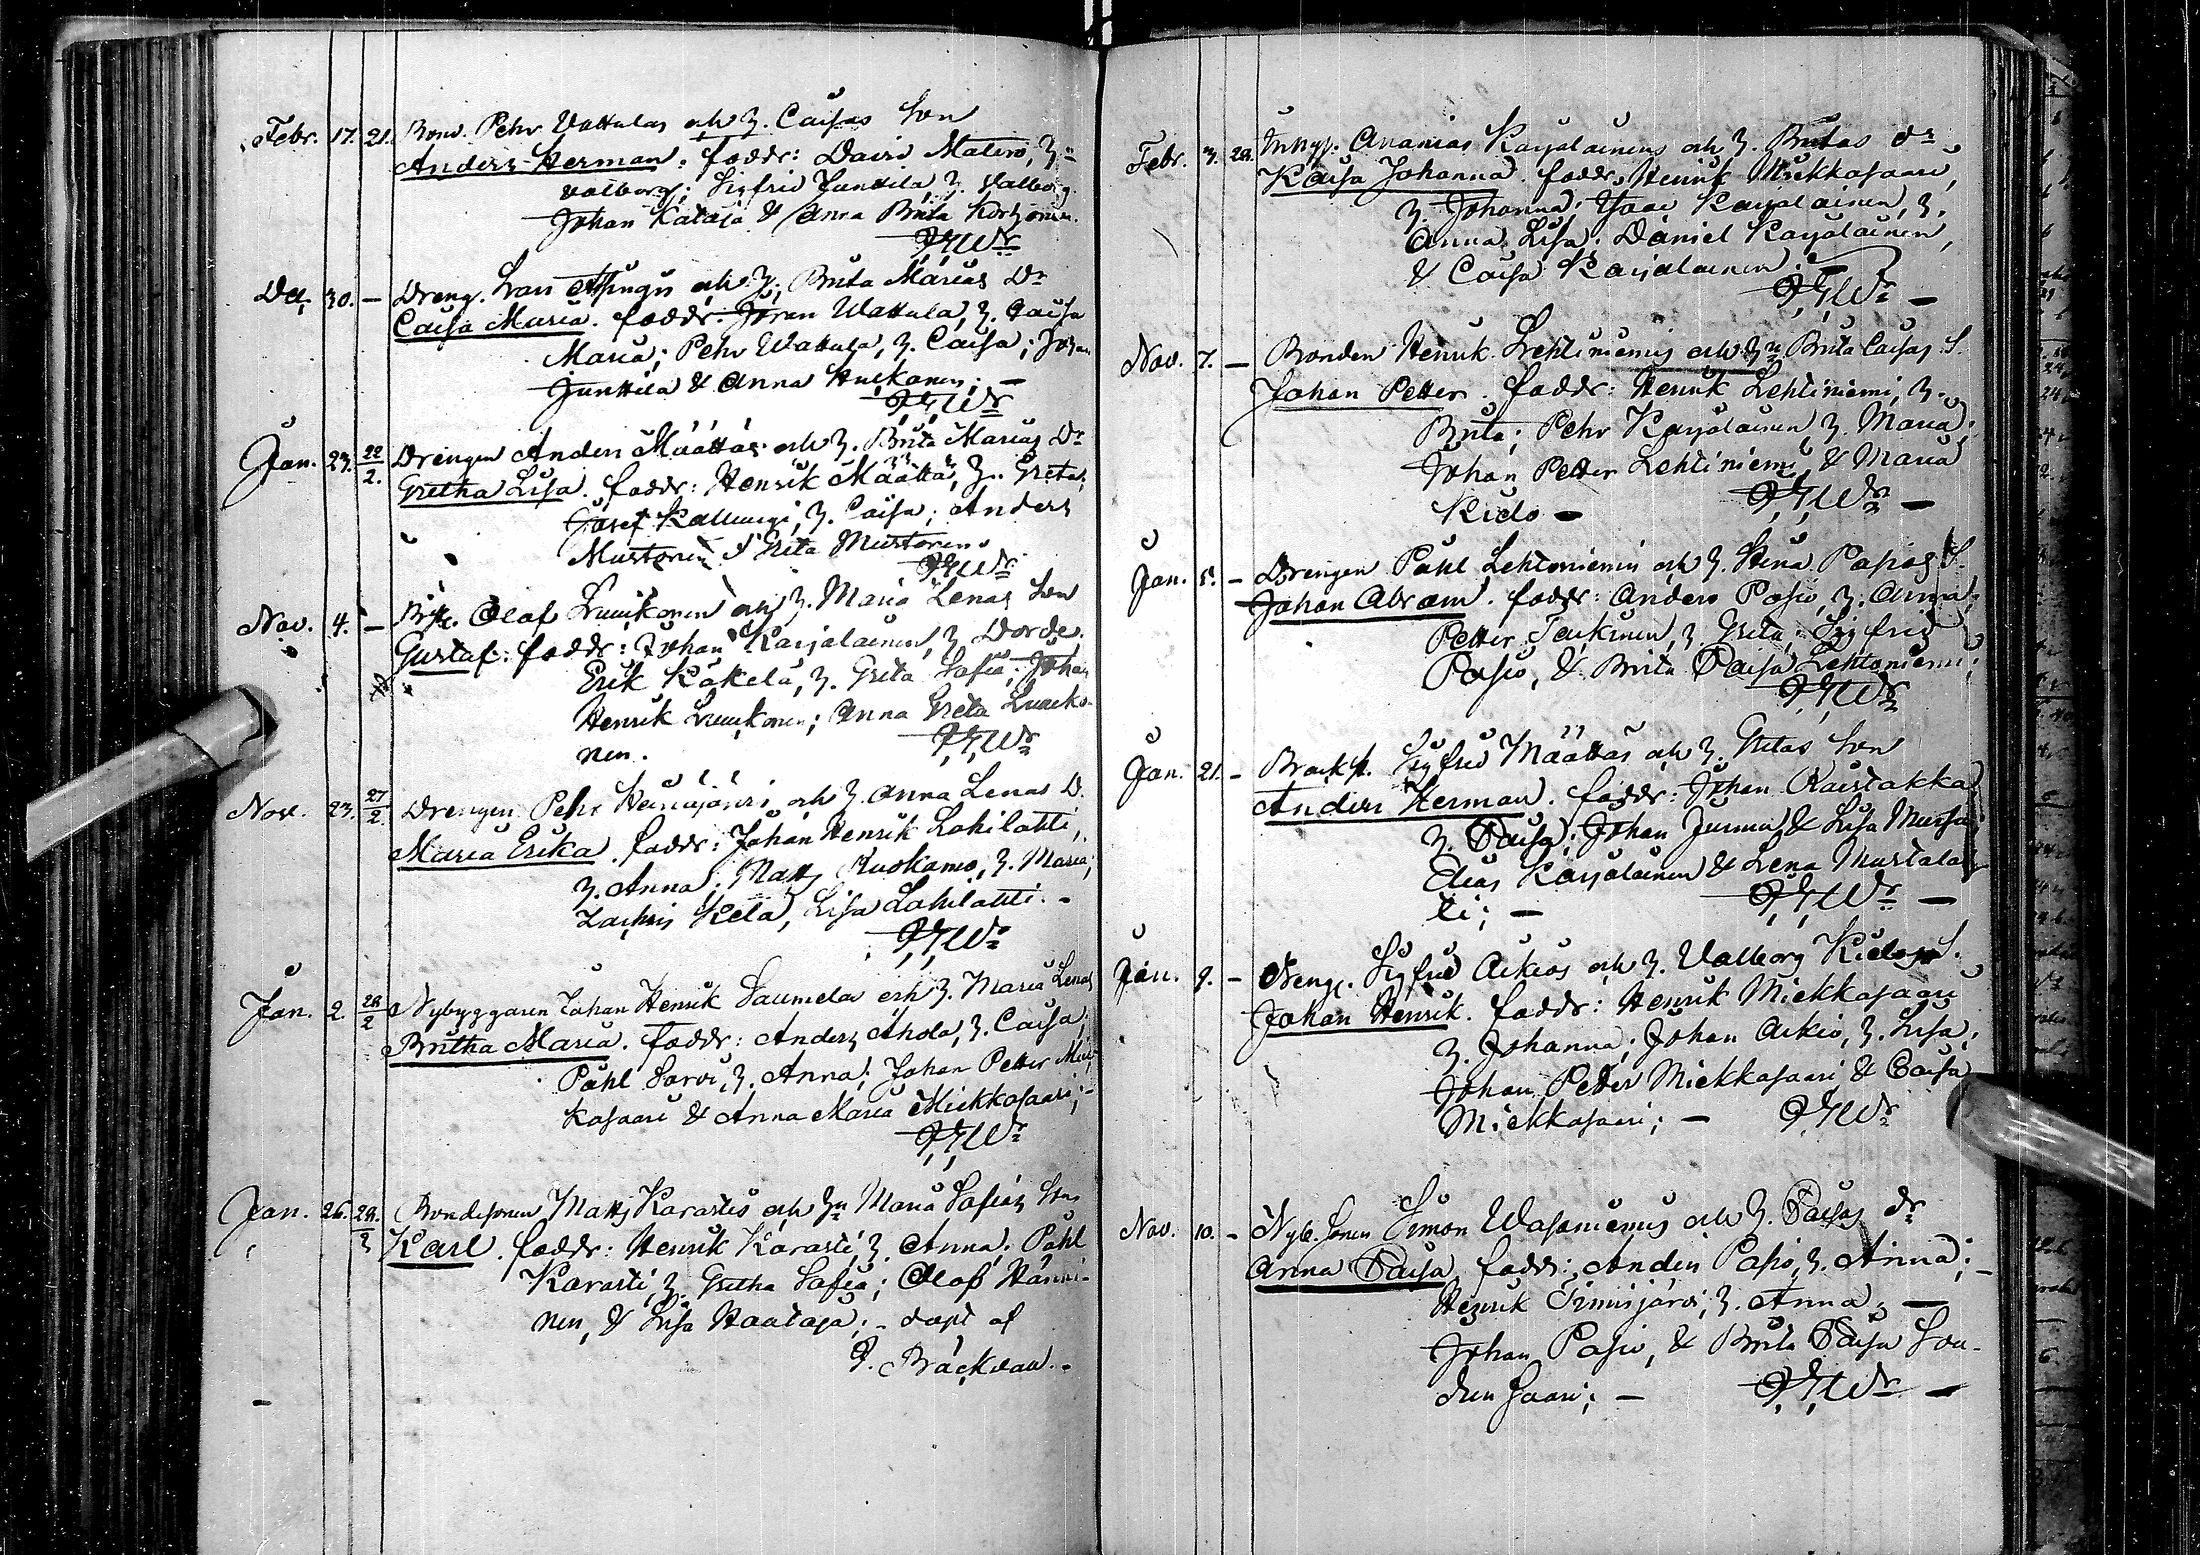 Febr. 17. 21. Bond. Pehr Vattulas och H. Caisas Son
Anders Herman. faddr: David Matero, H:u
Valborg; Sigfrid Junttila, H. Valborg.
Johan Kataja & Anna Brita
D:o 30. – Dreng. Lars och H. Brita Marias D:r
Caisa Maria. faddr: Jöran Wattula, H. Caisa
Maria; Pehr Wattula, H. Caisa; Johan
Junttila & Anna
Jan. 23. 22/2. Drengen Anders Määttäs och H. Brita Marias D:r
Gretha Lisa. faddr: Henrik Määttä, H. Greta;
Josef Kallungi, H. Caisa; Anders
Mustonen & Greta Mustonen.
Nov. 4. – Olof Luukonen och H. Maria Lenas Son
Gustaf. faddr: Johan Karjalainen, H. Dorde.
Erik Käkelä, H. Greta Sofia; Johan
Henrik Luukonen; Anna Greta Luuko-
nen.
Nov. 23. 27/2. Drengen Pehr Heinäjärvi och H. Anna Lenas D.
Maria Erika. faddr: Johan Henrik Lohilahti,
H. Anna; Matts Kuokamo, H. Maria;
Zachris Kela, Lisa Lohilahti. –
Jan. 2. 28/2 Nybyggaren Johan Henrik Saumela och H. Maria Lenas
Britha Maria. faddr: Anders Ahola, H. Caisa;
Påhl Sarvi, H. Anna; Johan Petter Miek-
kasaari & Anna Maria Miekkasaari; –
Jan. 26. 29. Bondesonen Matts Karastis och H:u Maria Sofias Son
Karl. faddr: Henrik Karasti, H. Anna; Påhl
Karasti, H. Gretha Sofia; Olof Hänni-
nen, & Lisa Haataja; – döpt af
Bäckvall. –
Febr. 3. 29. Ananias Karjalainens och H. Britas d:r
Kaisa Johanna. faddr: Henrik Miekkasaari,
H. Johanna; Isaac Karjalainen, H.
Anna Lisa; Daniel Karjalainen,
& Caisa Karjalainen; –
Nov. 7. – Bonden Henrik Lehtiniemis och H:u Brita Caisas S.
Johan Petter. faddr: Henrik Lehtiniemi, H.
Brita; Pehr Karjalainen, H. Maria;
Johan Petter Lehtiniemi, & Maria
Kielo –
Jan. 5. – Drengen Påhl Lehtoniemis och H. Stina Pasios S.
Johan Abram. faddr: Anders Pasio, H. Anna;
Petter H. Greta; Sigfrid
Pasio, & Brita Caisa Lehtoniemi;
Jan. 21. – Sigfrid Määttäs och H. Gretas Son
Anders Herman. faddr: Johan Raistakka
H. Caisa; Johan Jurmu & Lisa
Elias Karjalainen & Lena Mustalah-
ti; –
Jan. 9. – Sigfrid Aikios och H. Valborg Kielos S.
Johan Henrik. faddr: Henrik Miekkasaari
H. Johanna; Johan Aikio, H. Lisa;
Johan Petter Miekkasaari & Caisa
Miekkasaari; –
Nov. 10. – Nyb. Sonen Simon Wasaniemis och H. Caisas d:r
Anna Caisa. faddr: Anders Pasio, H. Anna; –
Henrik Sirniöjärvi, H. Anna; –
Johan Pasio, & Brita Caisa Sou-
dunsaari; –